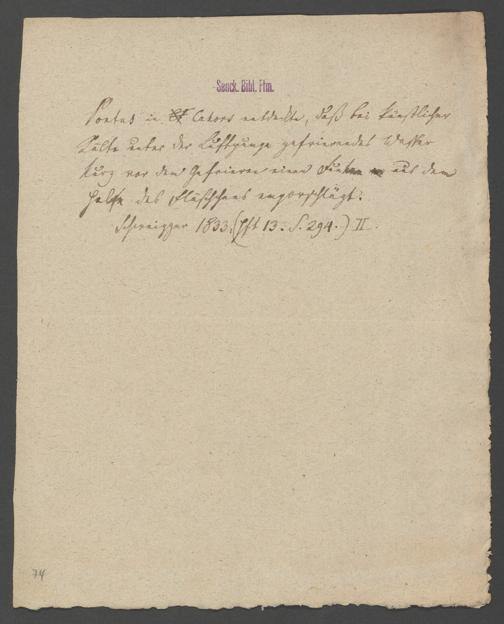 Senck. Bibl. Ffm.
Pontus in Cahors entdeckte, daß bei künstlicher
Kälte unter der Luftpumpe gefrierendes Wasser
kurz vor dem Gefrieren einen Funken aus dem
Halse des Fläschchens emporschlägt.
Schweigger 1833. (Hft 13. S. 294.) II.
74